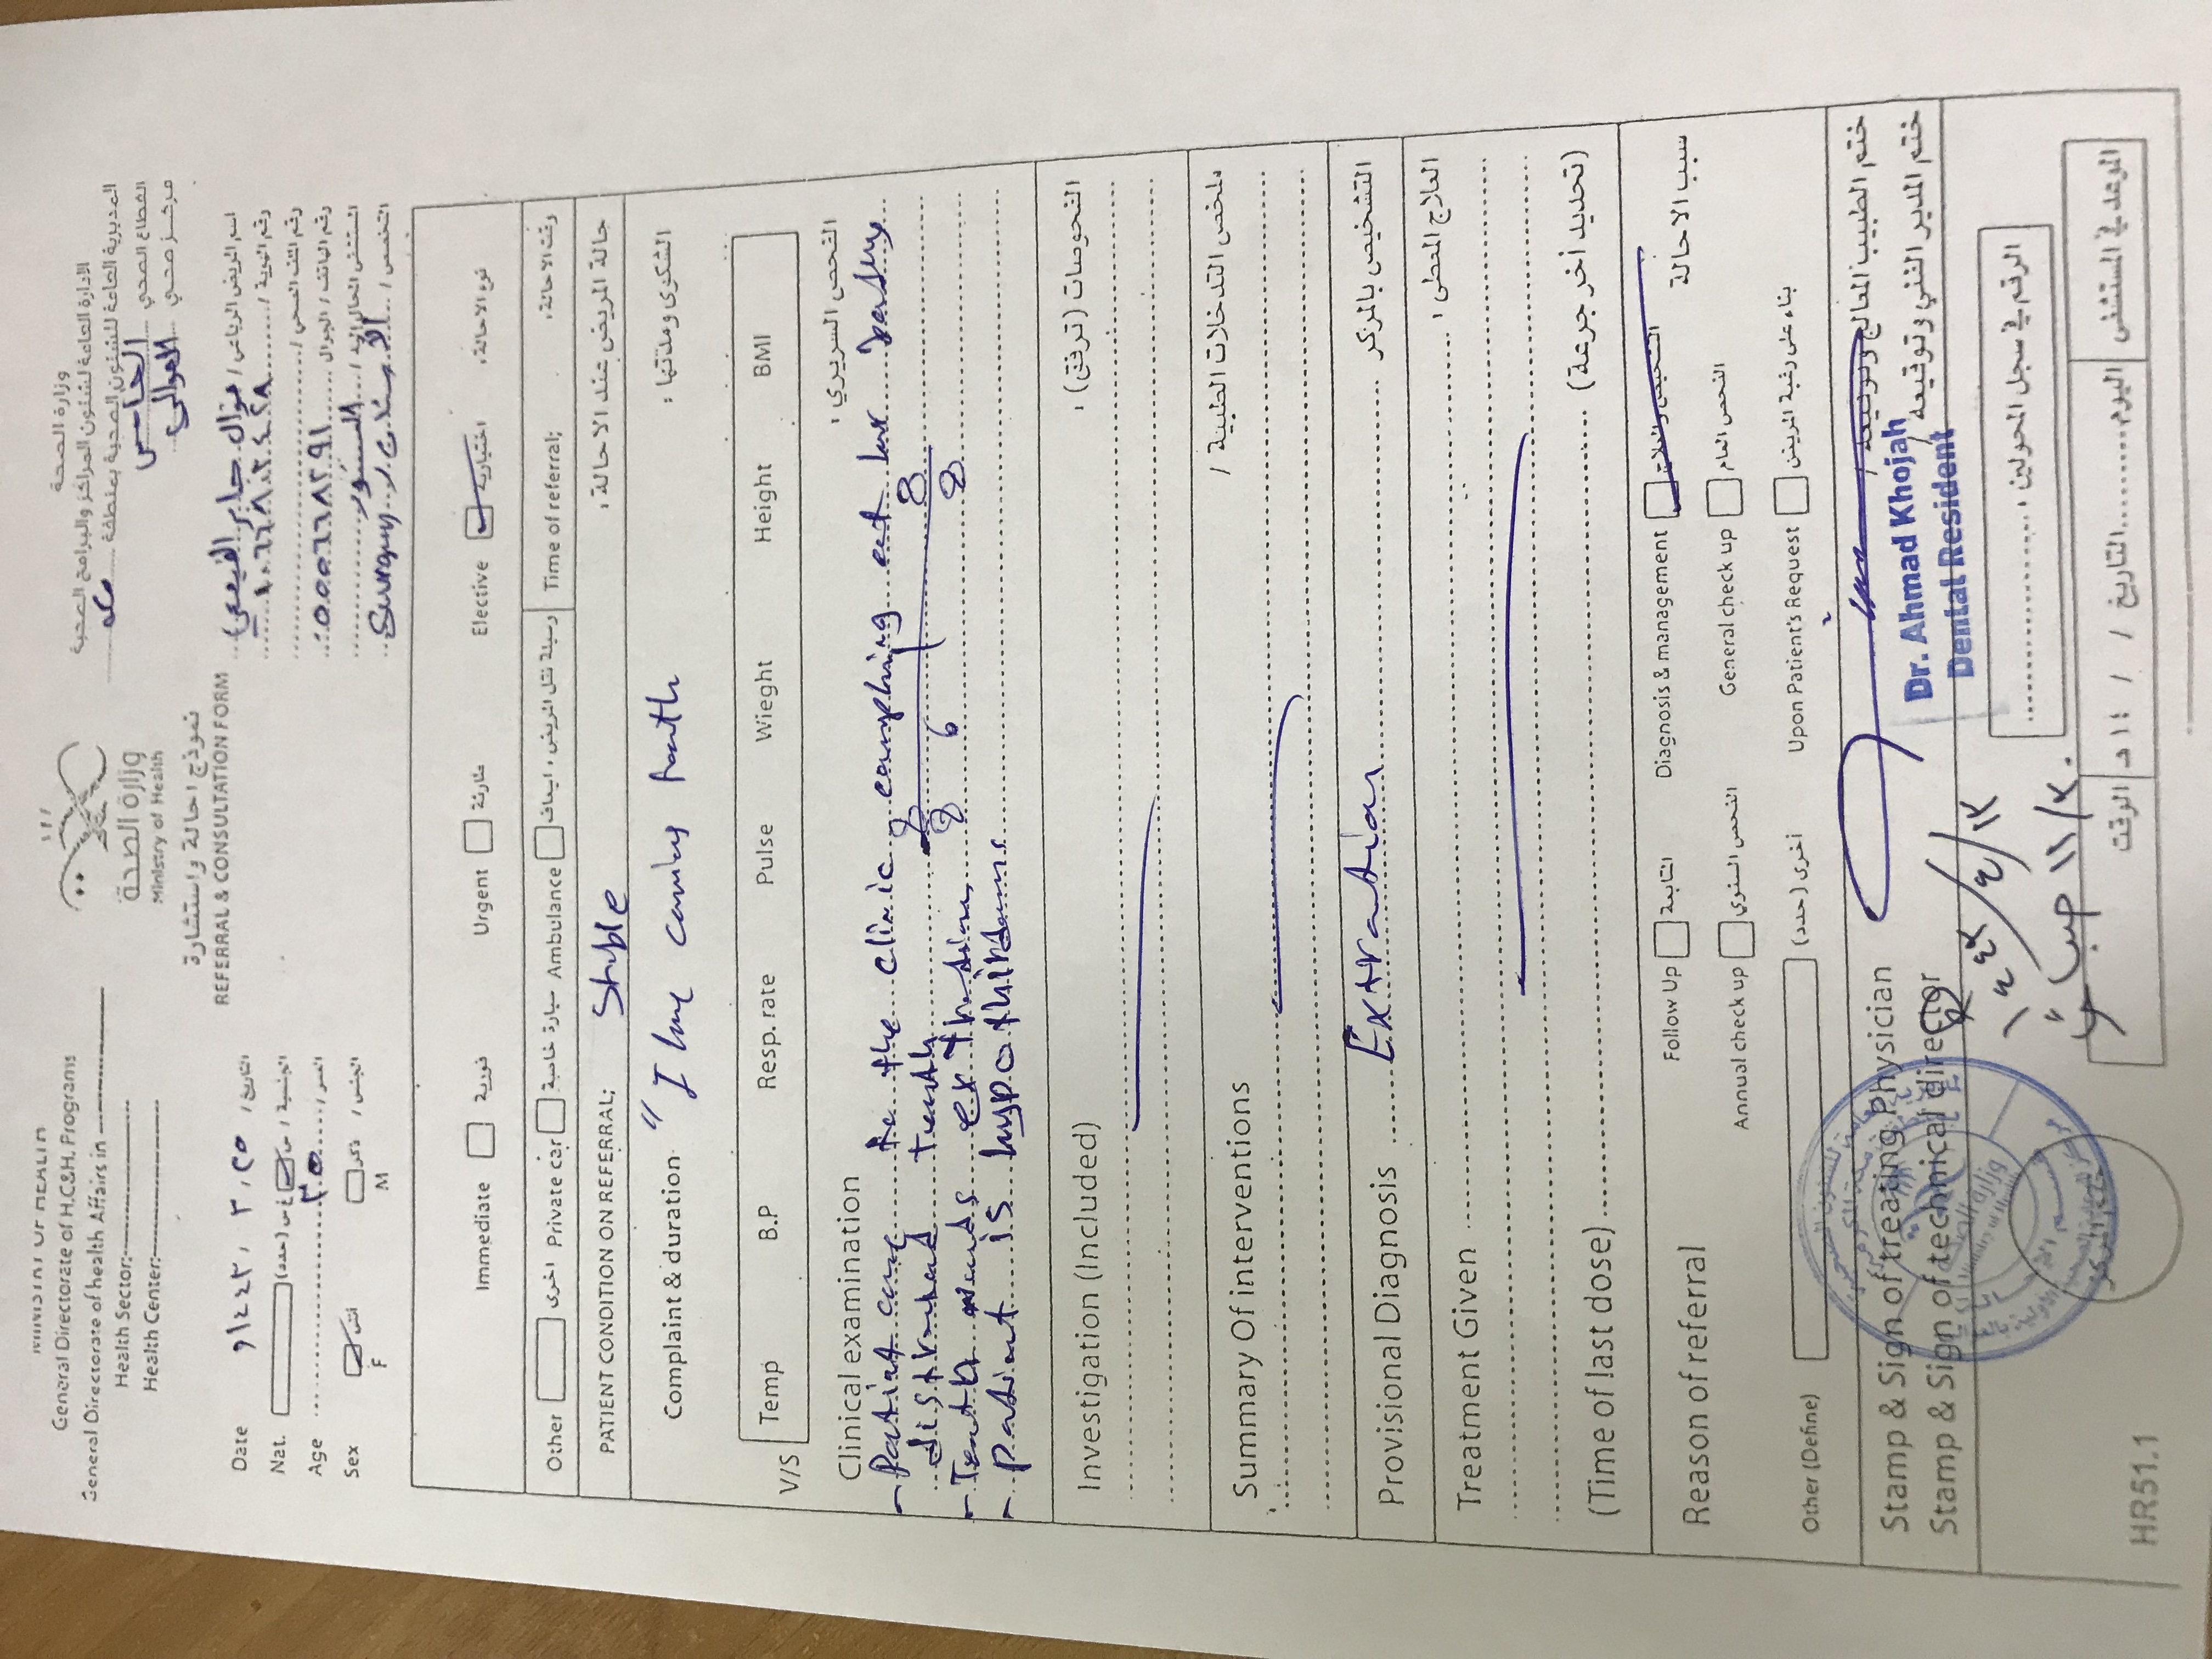 MINISTRY OF HEALTH
General Directorate of H.C&H. Programs
General Directorate of health Affairs in
Health Sector:
Health Center:
وزارة الصحة
Ministry of Health
نموذج احالة واستشارة
REFERRAL & CONSULTATION FORM
وزارة الصحة
الادارة العامة لشئون المراكز والبرامج الصحية
المديرية العامة للشئون الصحية بمنطقة مكة
القطاع الصحي الخامس
مركز صحي العوالي
Date ١٤٤٣ / ٣ / ٢٥ التاريخ /
Nat. الجنسية / س غ س (حدد)
Age ٣٥ العمر /
Sex أنثى ذكر الجنس /
F M
اسم المريض الرباعي / جابر
رقم الهوية / ١٠٦٦٨٠٢٤٢٨
رقم الملف الصحي /
رقم الهاتف / الجوال ٠٥٥٥٦٦٨٢٩١
المستشفى المحال إليه /
التخصص / الأسنان / Surgury
Immediate فورية Urgent طارئة Elective اختيارية نوع الاحالة:
Other اخرى Private car سيارة خاصة Ambulance وسيلة نقل المريض: اسعاف Time of referral; وقت الاحالة:
PATIENT CONDITION ON REFERRAL; Stuble حالة المريض عند الاحالة:
Complaint & duration " I have carious teeth الشكوى ومدتها:
V/S Temp B.P Resp. rate Pulse Wieght Height BMI
Clinical examination الفحص السريري:
- Patient came to the clinic her badly
teeth 8 8
- Teeth needs 8 6 8
- Patient is
Investigation (Included) الفحوصات (ترفق):
Summary Of interventions ملخص التدخلات الطبية /
Provisional Diagnosis Extration التشخيص بالمركز
Treatment Given العلاج المعطى:
(Time of last dose) (تحديد أخر جرعة)
Reason of referral Follow Up المتابعة Diagnosis & management التشخيص والعلاج سبب الاحالة
Annual check up الفحص السنوي General check up الفحص العام
Other (Define) أخرى (حدد) Upon Patient's Request بناء على رغبة المريض
Stamp & Sign of treating Physician ختم الطبيب المعالج وتوقيعه /
Stamp & Sign of technical director ختم المدير الفني وتوقيعه /
Dr. Ahmad Khojah
Dental Resident
وزارة الصحة
Ministry of Health
١٤٤٣/٤/١٣
١١/٣٠ صباحاً
الرقم في سجل المحولين:
ختم المركز
الموعد في المستشفى اليوم التاريخ / / ١٤هـ الوقت
HR51.1